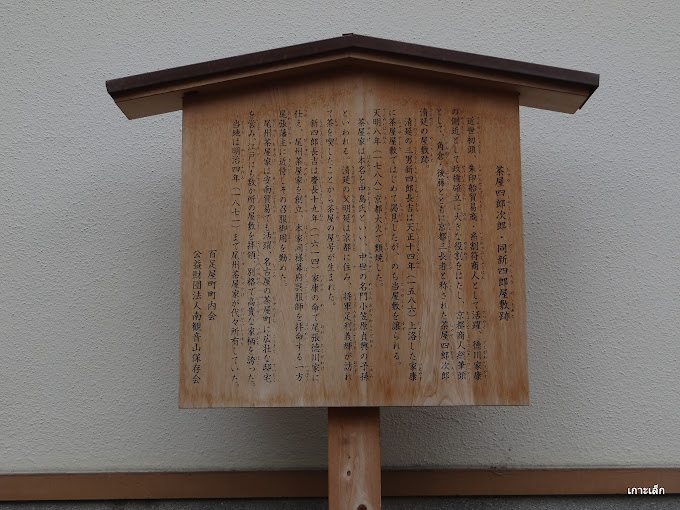 茶屋四郎次郎・同新四郎屋敷跡
近世初頭、朱印船貿易商・糸割符商人として活躍、徳川家康
の側近として政権確立に大きな役割をはたし、京都商人総筆頭
として、角倉、後藤とともに京都三長者と称された茶屋四郎次郎
清延の屋敷跡。
清延の三男新四郎長吉は天正十四年(一五八六)上洛した家康
に茶屋屋敷ではじめて謁見したが、のち当屋敷を譲られる。
天明八年(一七八八)京都大火で類焼した。
茶屋家は本名を中島氏といい、中世の名門小笠原貞興の子孫
といわれる。清延の父明延は京都に住み、将軍足利義輝が訪れ
て茶を喫したことから茶屋の屋号が生まれた。
新四郎長吉は慶長十九年(一六一四)家康の命で尾張徳川家に
仕え、尾州茶屋家を創立、本家同様幕府呉服師を拝命する一方
尾張藩主に近侍しその呉服御用を勤めた。
尾州茶屋家は安南貿易でも活躍、名古屋の茶屋町に広壮な邸宅
を営み江戸にも数か所の屋敷を拝領、別格で高貴な家柄を誇った。
当地は明治四年(一八七一)まで尾州茶屋家が代々所有していた。
百足屋町町内会
公益財団法人南観音山保存会
เกาะเล็ก